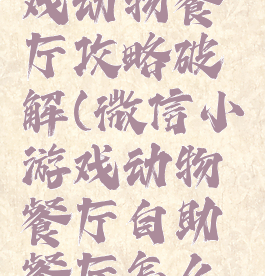 戏动物餐
厅攻略破
解(微信小
游戏动物
餐厅自助
餐厅怎么